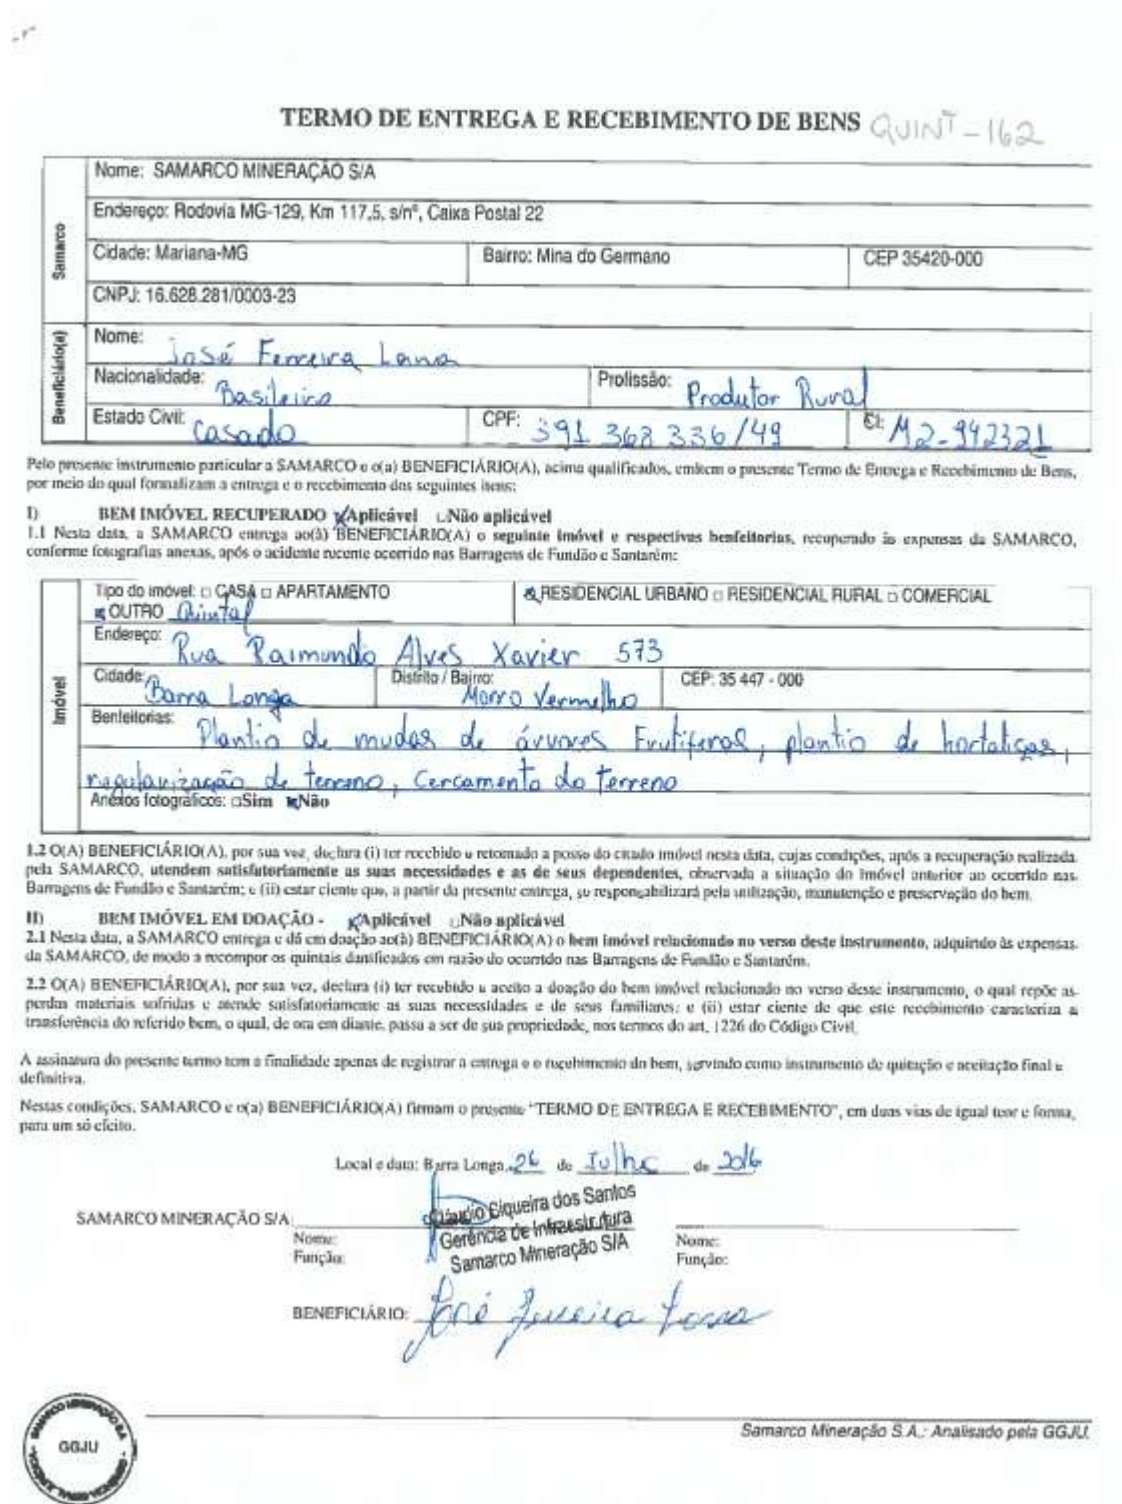 TERMO DE ENTREGA E RECEBIMENTO DE BENS QUINT-162
Samarco
Nome: SAMARCO MINERAÇÃO S/A
Endereço: Rodovia MG-129, Km 117,5, s/nº, Caixa Postal 22
Cidade: Mariana-MG Bairro: Mina do Germano CEP 35420-000
CNPJ: 16.628.281/0003-23
Beneficiário(a)
Nome: José Ferreira Lana
Nacionalidade: Basileiro Profissão: Produtor Rural
Estado Civil: Casado CPF: 391 368 336/49 CI: M2-942321
Pelo presente instrumento particular a SAMARCO e o(a) BENEFICIÁRIO(A), acima qualificados, emitem o presente Termo de Entrega e Recebimento de Bens,
por meio do qual formalizam a entrega e o recebimento dos seguintes itens:
I) BEM IMÓVEL RECUPERADO Aplicável □Não aplicável
1.1 Nesta data, a SAMARCO entrega ao(à) BENEFICIÁRIO(A) o seguinte imóvel e respectivas benfeitorias, recuperado às expensas da SAMARCO,
conforme fotografias anexas, após o acidente recente ocorrido nas Barragens de Fundão e Santarém:
Imóvel
Tipo do imóvel: □ CASA □ APARTAMENTO RESIDENCIAL URBANO □ RESIDENCIAL RURAL □ COMERCIAL
OUTRO Quintal
Endereço: Rua Raimundo Alves Xavier 573
Cidade: Barra Longa Distrito / Bairro: Morro Vermelho CEP: 35 447 - 000
Benfeitorias: Plantio de mudas de árvores Frutíferas, plantio de hortaliças,
regularização de terreno, Cercamento do terreno
Anexos fotográficos: □Sim Não
1.2 O(A) BENEFICIÁRIO(A), por sua vez, declara (i) ter recebido e retomado a posse do citado imóvel nesta data, cujas condições, após a recuperação realizada
pela SAMARCO, atendem satisfatoriamente as suas necessidades e as de seus dependentes, observada a situação do imóvel anterior ao ocorrido nas
Barragens de Fundão e Santarém; e (ii) estar ciente que, a partir da presente entrega, se responsabilizará pela utilização, manutenção e preservação do bem.
II) BEM IMÓVEL EM DOAÇÃO - Aplicável □Não aplicável
2.1 Nesta data, a SAMARCO entrega e dá em doação ao(à) BENEFICIÁRIO(A) o bem imóvel relacionado no verso deste instrumento, adquirido às expensas
da SAMARCO, de modo a recompor os quintais danificados em razão do ocorrido nas Barragens de Fundão e Santarém.
2.2 O(A) BENEFICIÁRIO(A), por sua vez, declara (i) ter recebido e aceito a doação do bem imóvel relacionado no verso desse instrumento, o qual repõe as
perdas materiais sofridas e atende satisfatoriamente as suas necessidades e de seus familiares; e (ii) estar ciente de que este recebimento caracteriza a
transferência do referido bem, o qual, de ora em diante, passa a ser de sua propriedade, nos termos do art. 1226 do Código Civil.
A assinatura do presente termo tem a finalidade apenas de registrar a entrega e o recebimento do bem, servindo como instrumento de quitação e aceitação final e
definitiva.
Nestas condições, SAMARCO e o(a) BENEFICIÁRIO(A) firmam o presente "TERMO DE ENTREGA E RECEBIMENTO", em duas vias de igual teor e forma,
para um só efeito.
Local e data: Barra Longa, 26 de Julho de 2016
SAMARCO MINERAÇÃO S/A
Cláudio Siqueira dos Santos
Gerência de Infraestrutura
Samarco Mineração S/A
Nome: Nome:
Função: Função:
BENEFICIÁRIO: José Ferreira Lana
GGJU
Samarco Mineração S.A.: Analisado pela GGJU.